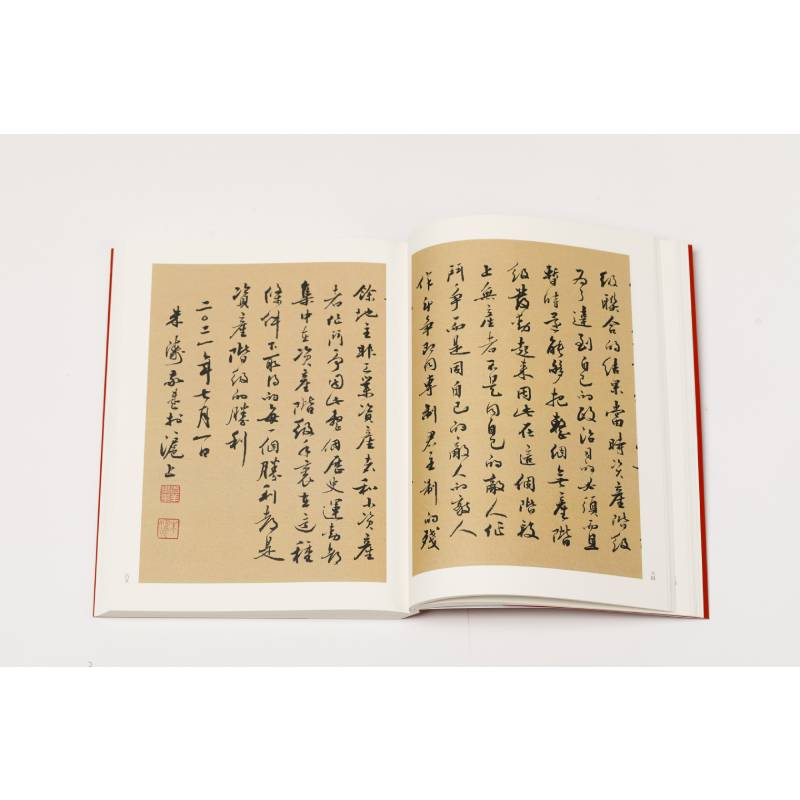 级聯合的结果當時资產階级
為了達到自己的政治目的必須而且
暫時還能够把整個無產階
级發動起來因此在這個階段
上無產者不是同自己的敵人作
鬥爭而是同自己的敵人的敵人
作鬥争即同專制君主制的殘
餘地主非工業資產者和小資產
者作鬥爭因此整個歷史運動都
集中在資產階级手裏在這種
條件下取得的每一個勝利都是
資產階级的勝利
二〇二一年七月一日
朱濤敬書於滬上